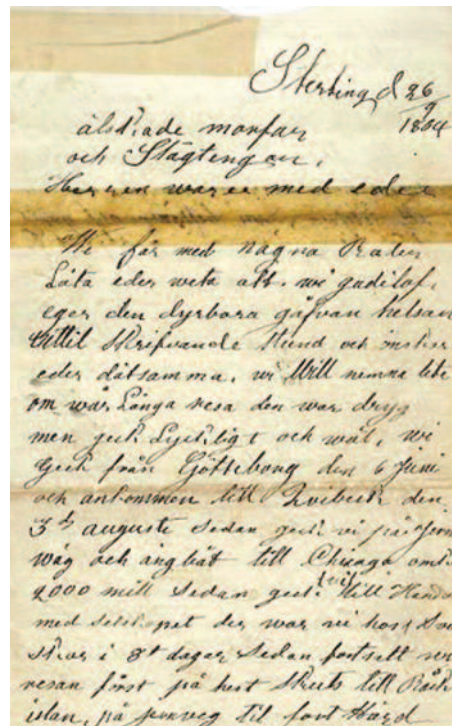 Sterling d 26/9 1864
älskade morfar
och Slägtengar.
Herren ware med eder
Vi får med någna Rader
Låta eder weta att. wi gudilof.
eger den dyrbara gåfvan helsan
intill Skrifvande Stund och önskar
eder dätsamma. wi Will nemna lite
om wår Långa resa den war dryg
men geck Lyckligt och wäl, wi
geck från Götteborg den 6 Juni
och ankommen till Qvibeck den
3d auguste sedan geck vi på Jern
wäg och ångbåt till Chicago omk.
2000 mill sedan geck wi till
med der war wi hos
i 8t dagar Sedan fortsatt wi
resan först på hest Skuts till Råck
islan, på jernveg til fort Håvd